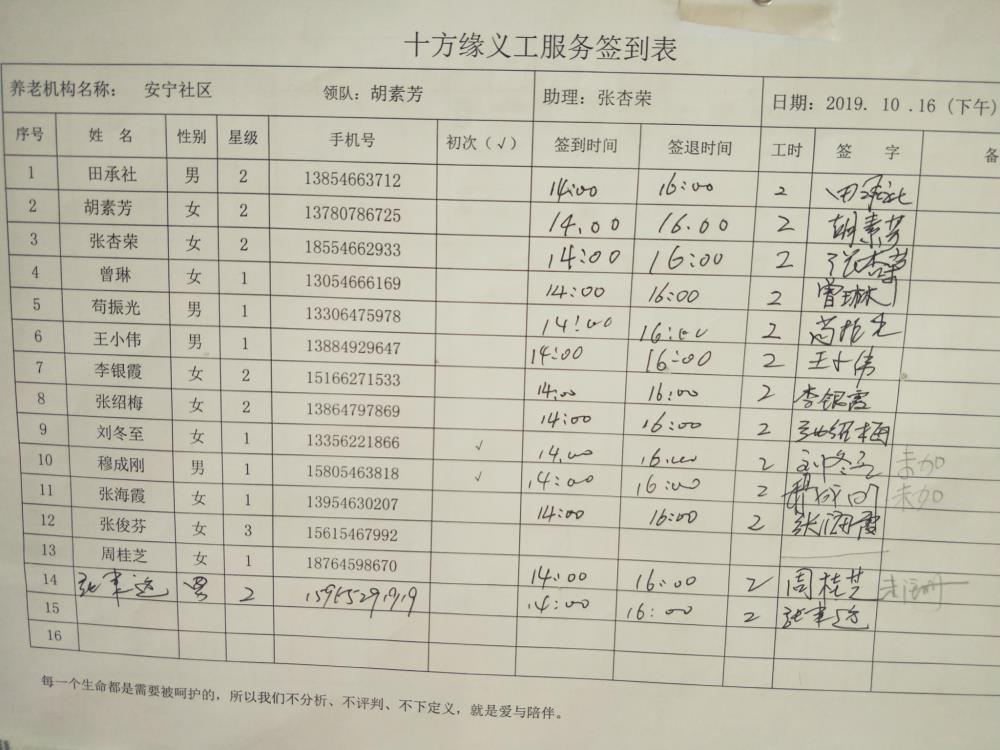 十方缘义工服务签到表
养老机构名称： 安宁社区 领队：胡素芳 助理：张杏荣 日期：2019. 10 .16 (下午)
序号 姓 名 性别 星级 手机号 初次（√） 签到时间 签退时间 工时 签 字 备
1 田承社 男 2 13854663712 14:00 16:00 2 田承社
2 胡素芳 女 2 13780786725 14.00 16.00 2 胡素芳
3 张杏荣 女 2 18554662933 14:00 16:00 2 张杏荣
4 曾琳 女 1 13054666169 14:00 16:00 2 曾琳
5 苟振光 男 1 13306475978 14:00 16:00 2 苟振光
6 王小伟 男 1 13884929647 14:00 16:00 2 王小伟
7 李银霞 女 2 15166271533 14:00 16:00 2 李银霞
8 张绍梅 女 2 13864797869 14:00 16:00 2 张绍梅
9 刘冬至 女 1 13356221866 √ 14.00 16.00 2 刘冬至 未加
10 穆成刚 男 1 15805463818 √ 14:00 16:00 2 穆成刚 未加
11 张海霞 女 1 13954630207 14:00 16:00 2 张海霞
12 张俊芬 女 3 15615467992
13 周桂芝 女 1 18764598670 14:00 16:00 2 周桂芝 未注册
14 张军远 男 2 14:00 16:00 2 张军远
15
16
每一个生命都是需要被呵护的，所以我们不分析、不评判、不下定义，就是爱与陪伴。